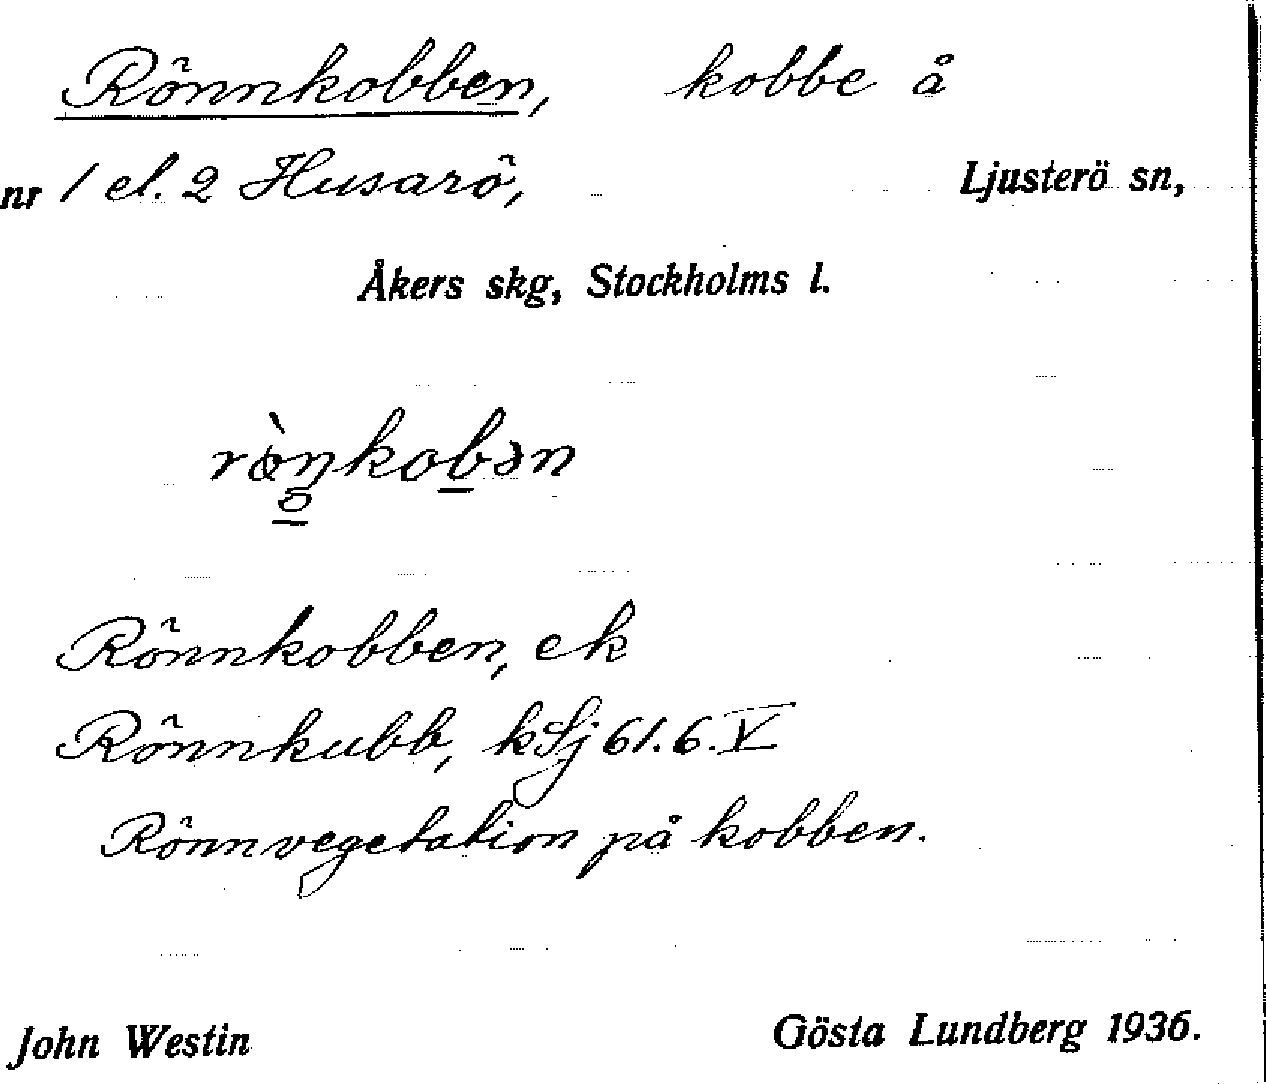 Rönnkobben, kobbe å
nr 1 el. 2 Husarö, Ljusterö sn,
Åkers skg, Stockholms l.
Rönnkobben, ek
Rönnkubb, kSj 61.6.V
Rönnvegetation på kobben.
John Westin Gösta Lundberg 1936.